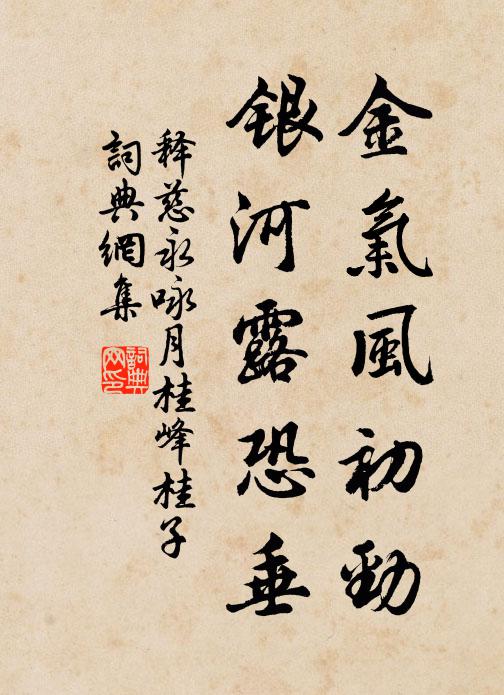 金氣風初勁
銀河露恐垂
释慈永咏月桂峰桂子
詞典網集
詞典
网印